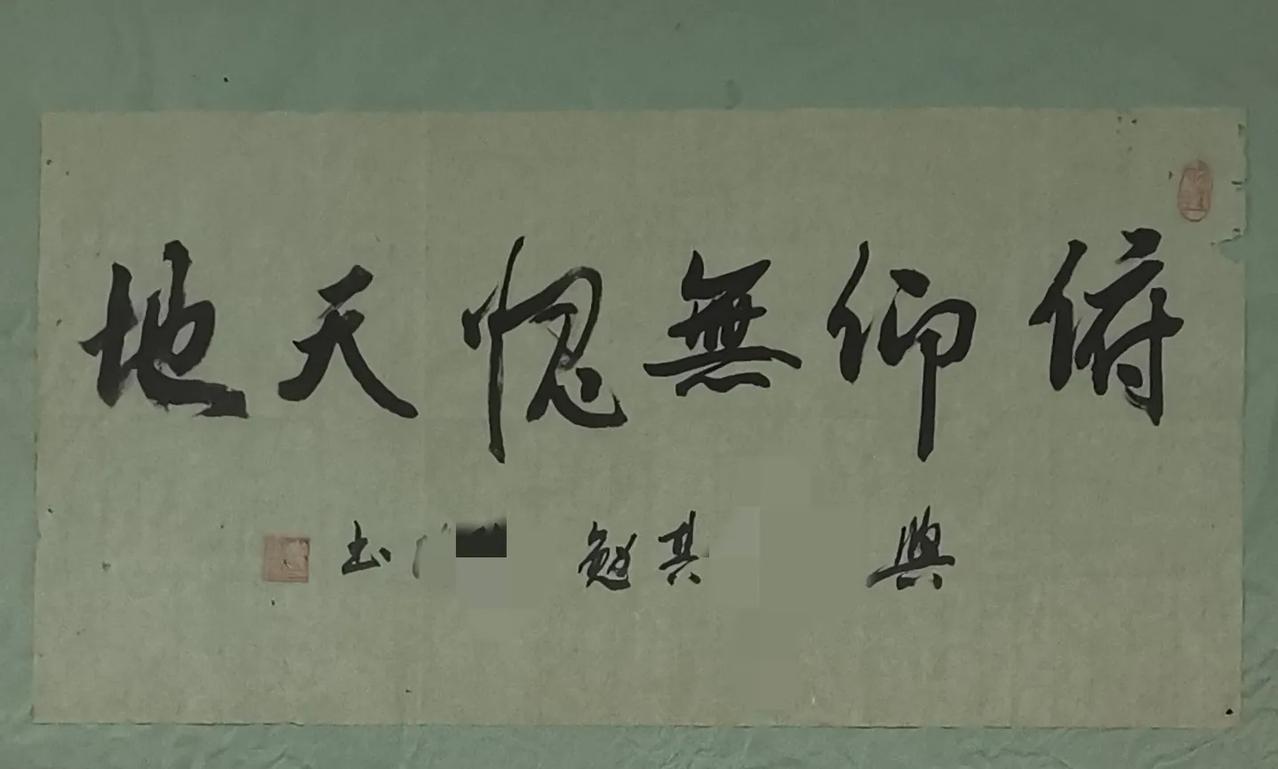 俯仰無愧天地
與 其勉 書